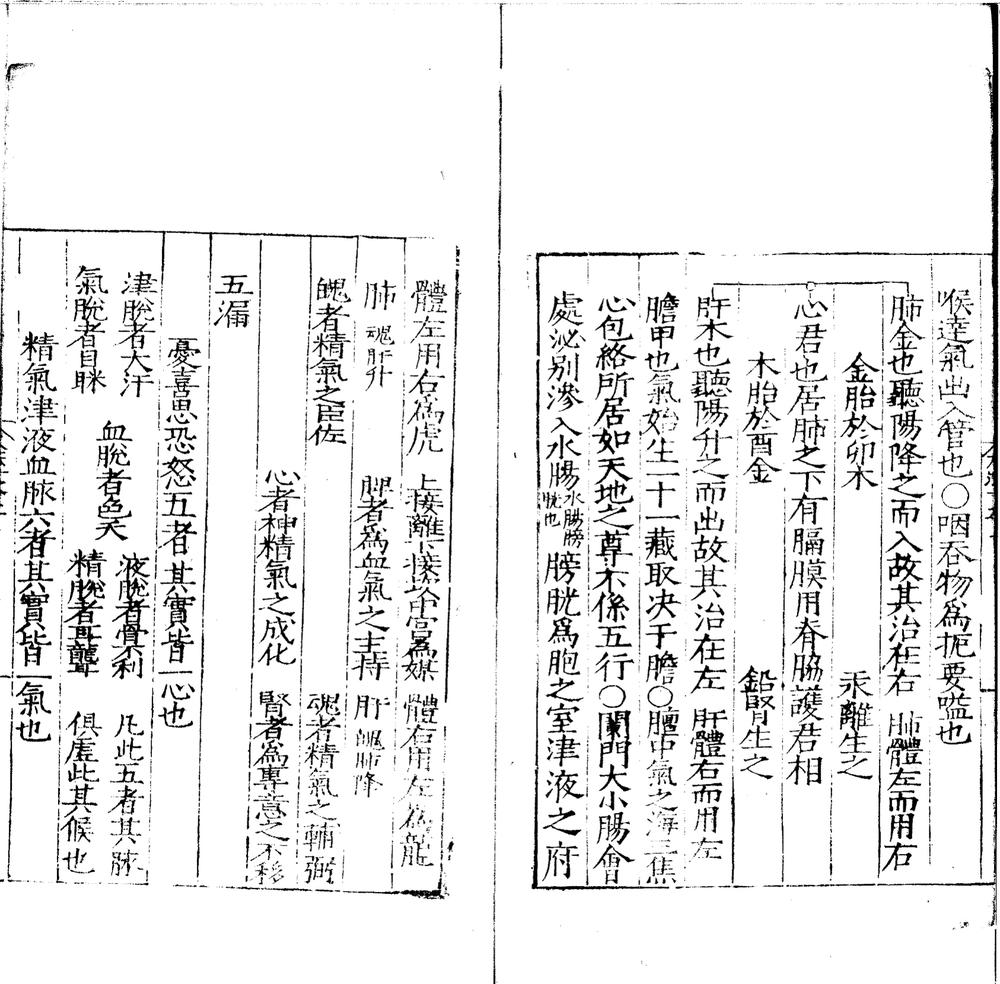 喉達氣出入管也○咽吞物為扼要嗌也
肺金也聽陽降之而入故其治在右 肺體左而用右
金胎於卯木 汞離生之
心君也居肺之下有膈膜用脊脇護君相
木胎於酉金 鉛腎生之
肝木也聽陽升之而出故其治在左 肝體右而用左
膽甲也氣始生一十一藏取决于膽○膻中氣之海三焦
心包絡所居如天地之尊不係五行○闌門大小腸會
處泌別滲入水腸水腸膀胱也膀胱爲胞之室津液之府
體左用右爲虎 上接離下接坎中宮爲媒 體右用左爲龍
肺 魂肝升 脾者爲血氣之主持 肝 魄肺降
魄者精氣之臣佐 魂者精氣之輔弼
心者神精氣之成化 腎者爲專意之不移
五漏
憂喜思恐怒五者其實皆一心也
津脫者大汗 液脫者骨不利 凡此五者其脉
血脫者色夭
氣脫者目眯 精脫者耳聾 俱虛此其候也
精氣津液血脉六者其實皆一氣也